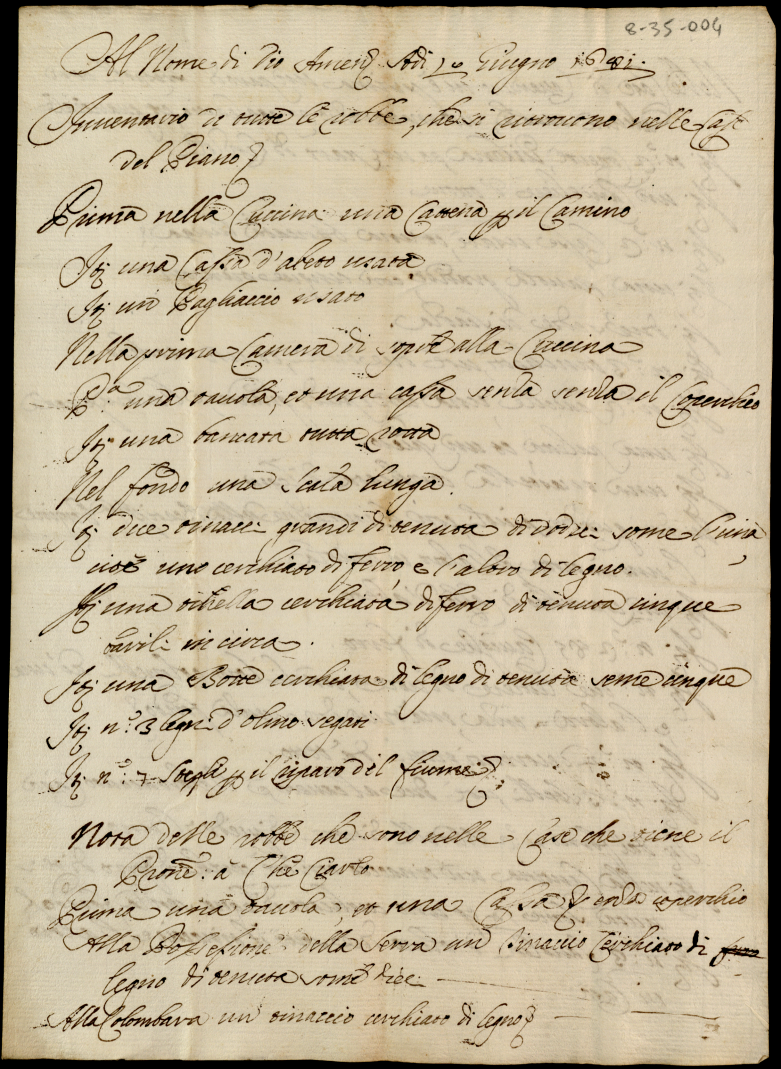 8-35-004
Al Nome di Dio Amen Adi Giugno 1681.
Inventario di tutte le robbe, che si ritrovono nelle Case
del Piano
Prima nella Cuccina una Cattena p il Camino
It una Cassa d'abeto usata
It un Pagliaccio usato
Nella prima Camera di sopra alla Cuccina
P.a una tavola, et una cassa senza il Coperchio
It una bancata tutta rotta
Nel fondo una Scala lunga.
It dice tinacci grandi di tenuta di dodici some l'uno
cioè uno cerchiato di ferro e l'altro di legno.
It una tinella cerchiata di ferro di tenuta cinque
barili in circa.
It una Botte cerchiata di legno di tenuta some cinque
It n.o 3 legni d'olmo segati
It n.o 7 p il riparo del fiume
Nota delle robbe che sono nelle Case che tiene il
à Ciarlo
Prima una tavola, et una Cassa senza coperchio
Alla Possesione della Serra un Tinaccio Cerchiato di
legno di tenuta some dieci
Alla Colombara un tinaccio cerchiato di legno